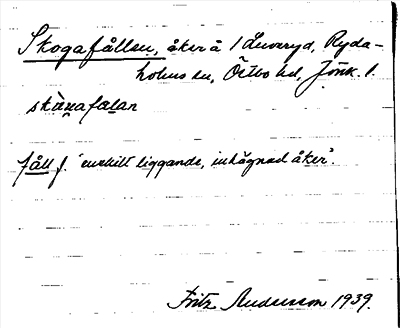 Skogafållan, åker å 1 Luveryd, Ryda-
holms sn, Östbo hd, Jönk. l.
skɷgafalan
fåll f. 'enskilt liggande, inhägnad åker'.
Fritz Andersson 1939.